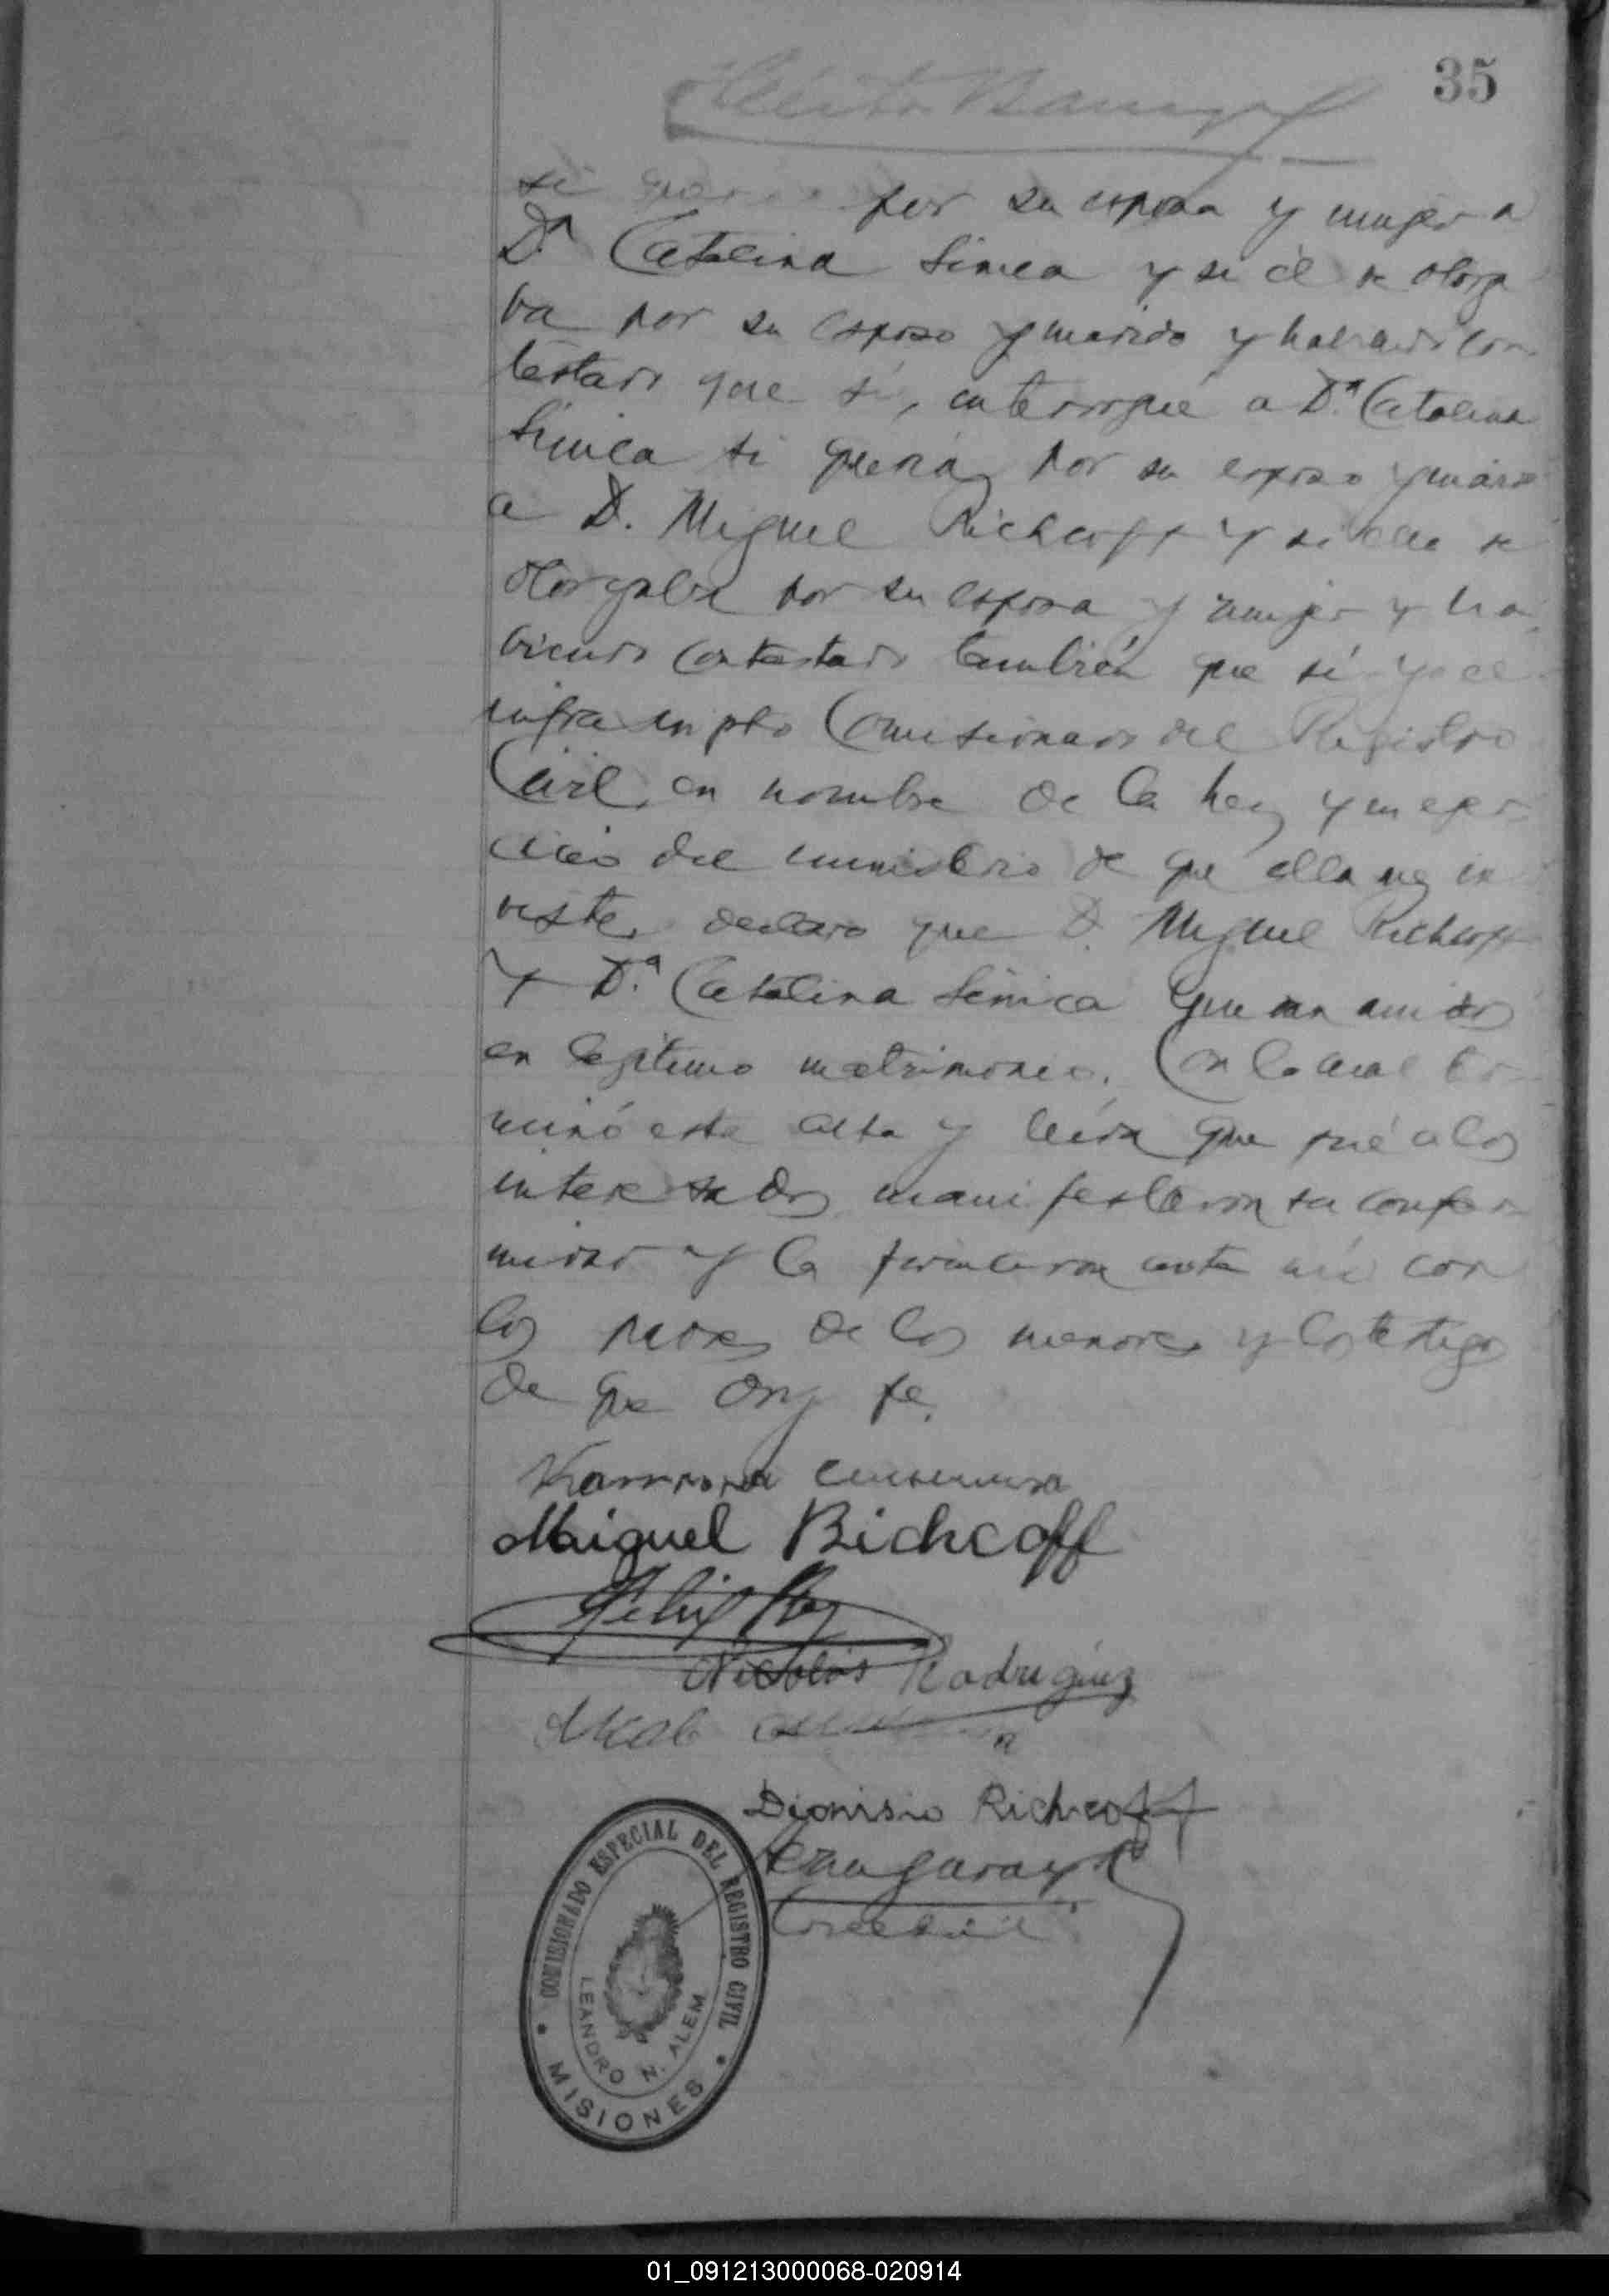 35
si por su esposa y mujer a
D.ª Catalina Simca y si él se otorga
ba por su esposo y marido y habiendo con
testado que sí, interrogué a D.ª Catalina
Simca si quería por su esposo y marido
a D. Miguel Richcoff y si ella se
otorgaba por su esposa y mujer y ha
biendo contestado también que sí yo el
infrascripto Comisionado del Registro
Civil, en nombre de la Ley y en ejer
cicio del ministerio de que ella me in
viste, declaro que D. Miguel Richcoff
y D.ª Catalina Simica quedan unidos
en legítimo matrimonio. Con lo cual ter
minó esta acta y leída que fué a los
interesados manifestaron su confor
midad y la firmaron ante mí con
los padres de los menores y los testigos
de que doy fe.
Miguel Richcoff
Nicolás Rodriguez
Dionisio Richcoff
COMISIONADO ESPECIAL DEL REGISTRO CIVIL
LEANDRO N. ALEM
MISIONES
01_091213000068-020914